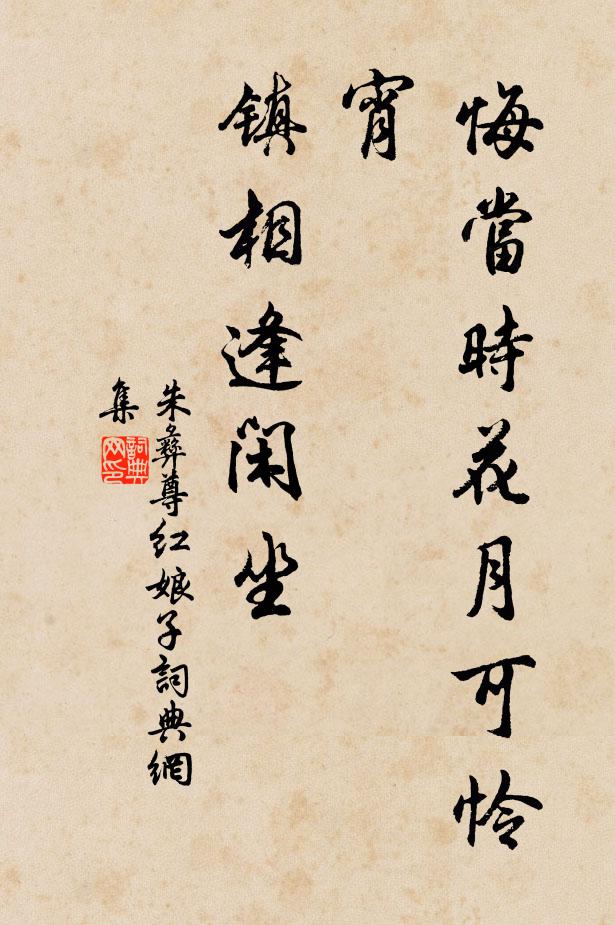 悔當時花月可怜
宵
鎮相逢闲坐
朱彝尊红娘子詞典網
集
詞典网印